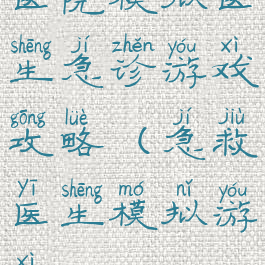 医院模拟医
shēng jí zhěn yóu xì
生急诊游戏
gōng lüè jí jiù
攻略(急救
yī shēng mó nǐ yóu
医生模拟游
xì